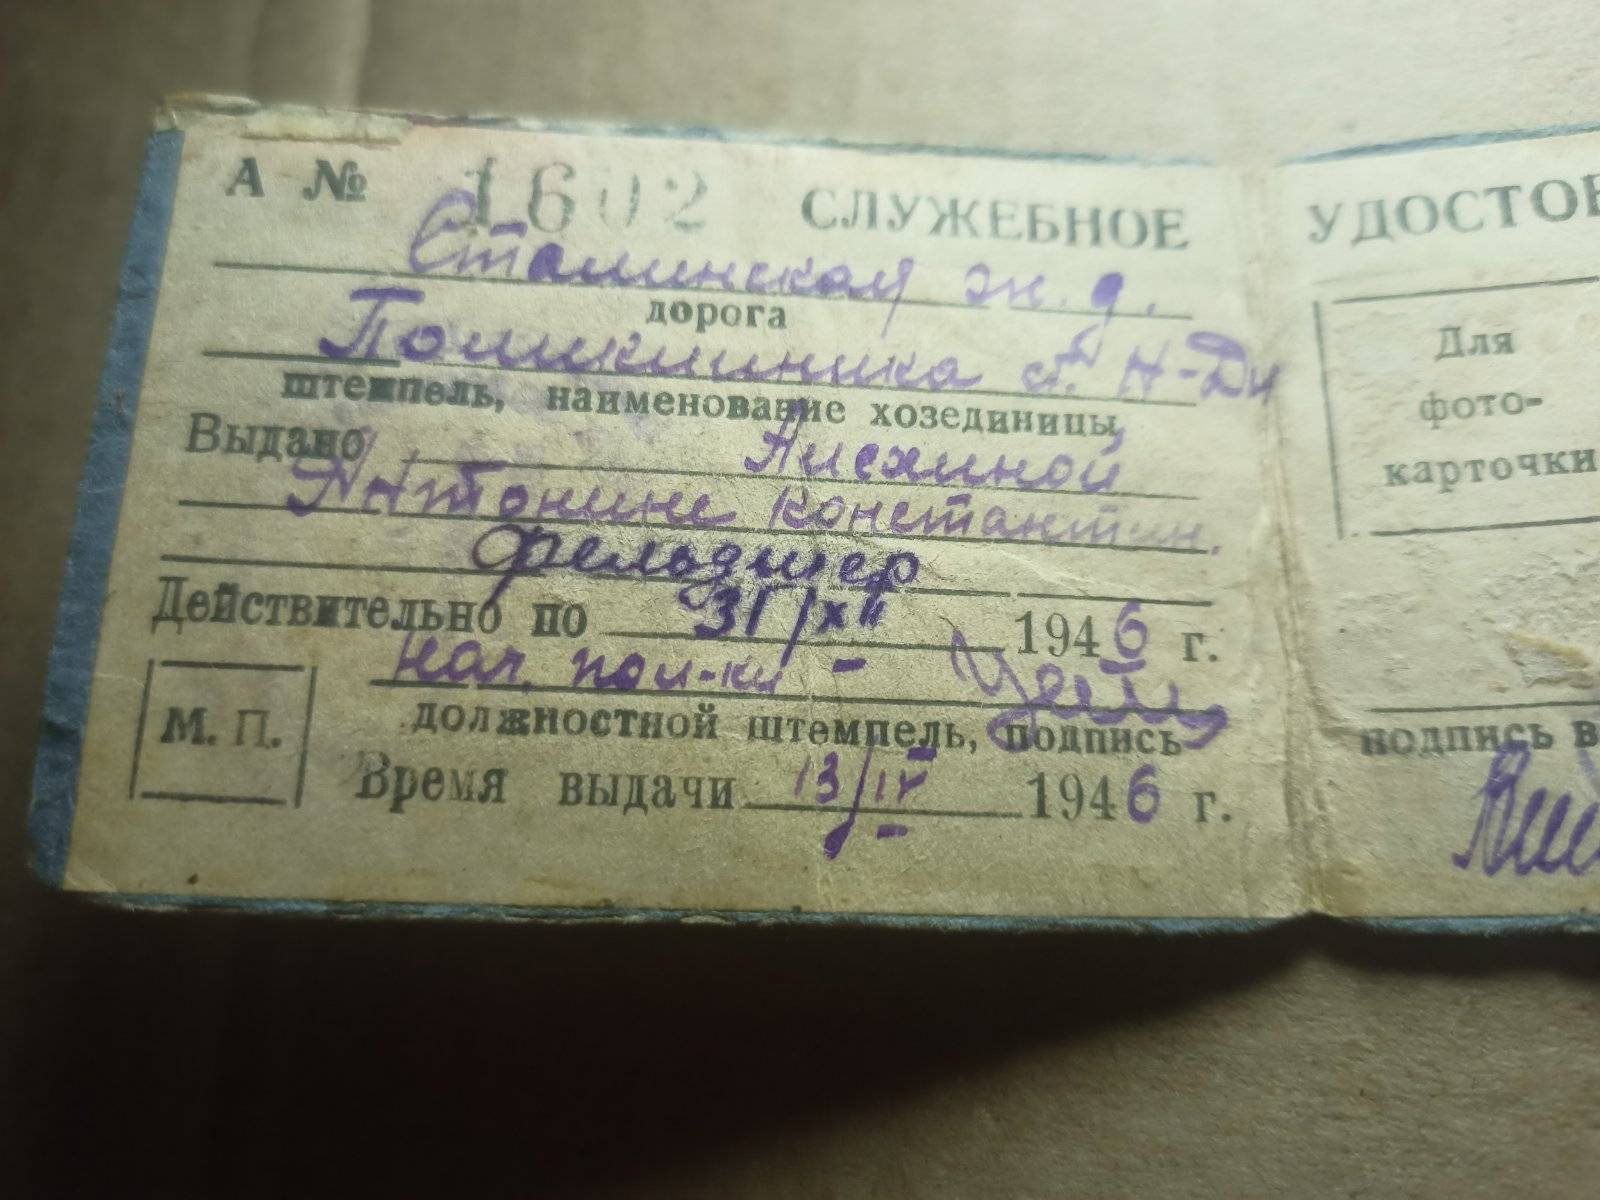 А № 1602 СЛУЖЕБНОЕ
Сталинская ж. д.
дорога
Поликлиника ст. Н-Дн
штемпель, наименование хозединицы
Выдано Лисхиной
Антонине Константин.
фельдшер
Действительно по 31/XII 1946 г.
Нач. пол-ки -
должностной штемпель, подпись
М. П.
Время выдачи 13/IV 1946 г.
УДОСТОВ
Для
фото-
карточки
подпись в